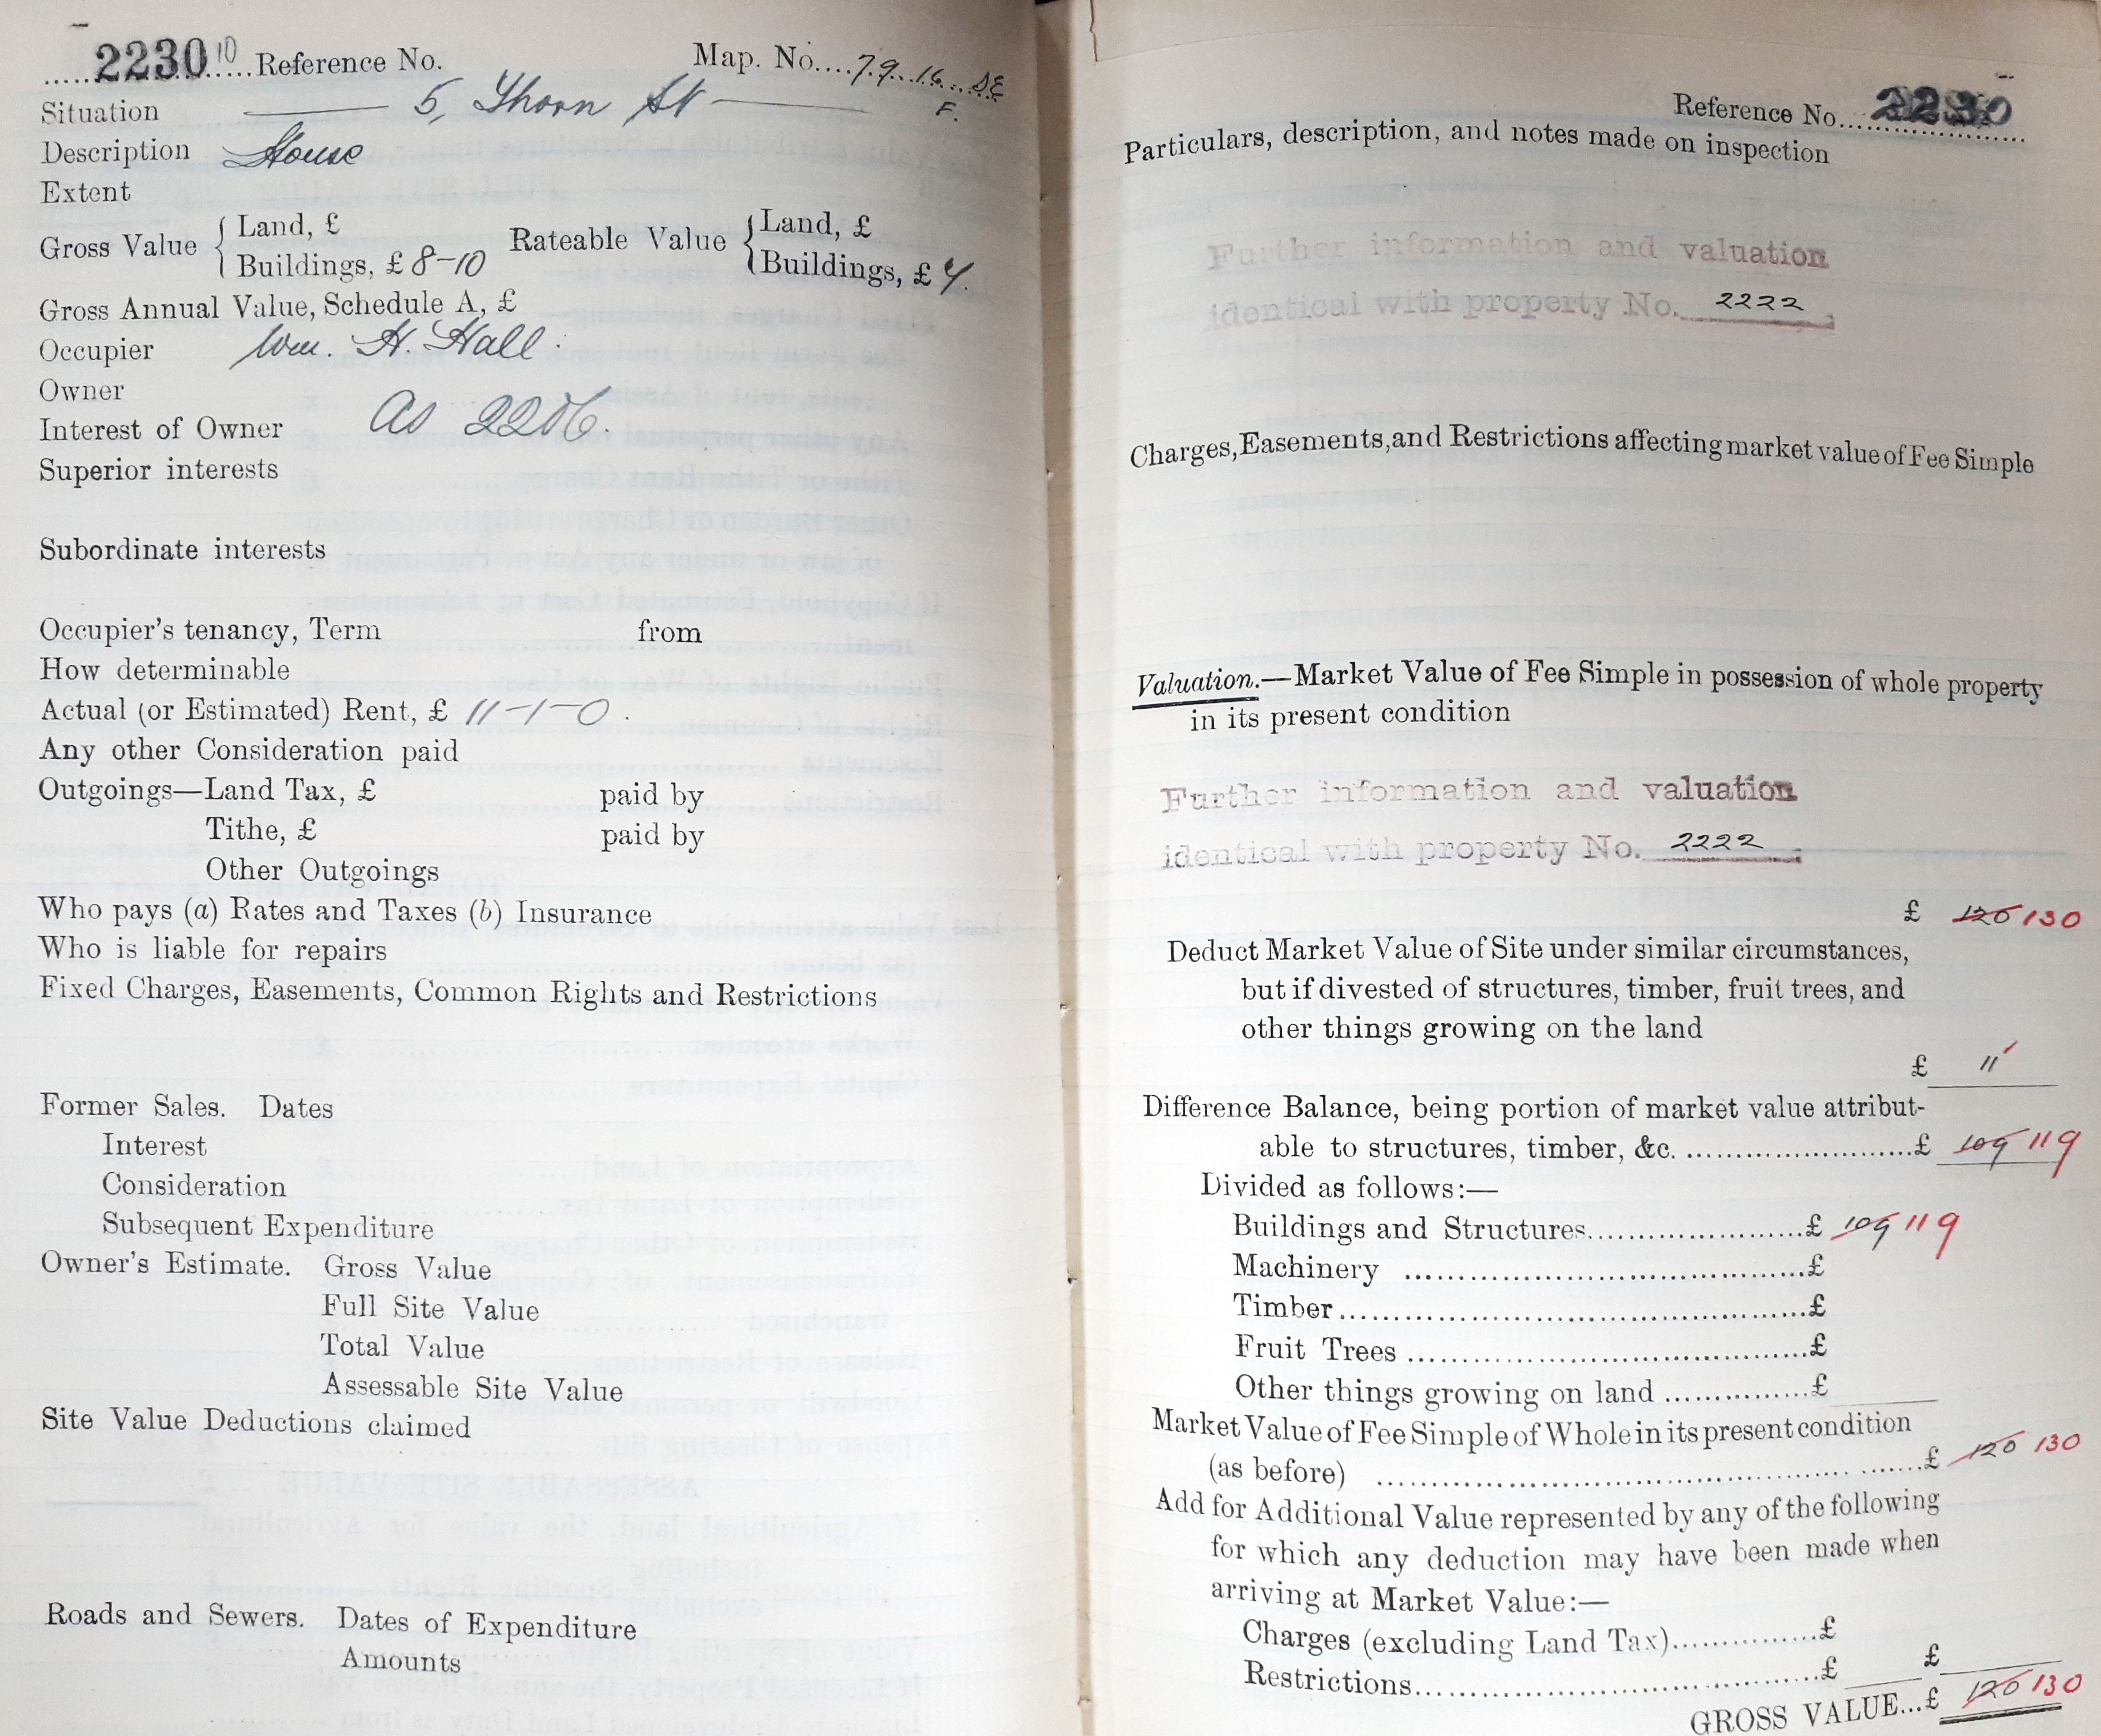 2230 10 Reference No. Map. No. 79.16. SE
F.
Situation 5, Thorn St
Description House
Extent
Gross Value { Land, £ Rateable Value { Land, £
Buildings, £ 8-10 Buildings, £
Gross Annual Value, Schedule A, £
Occupier Wm. H. Hall.
Owner
Interest of Owner As 2206.
Superior interests
Subordinate interests
Occupier's tenancy, Term from
How determinable
Actual (or Estimated) Rent, £ 11-1-0.
Any other Consideration paid
Outgoings—Land Tax, £ paid by
Tithe, £ paid by
Other Outgoings
Who pays (a) Rates and Taxes (b) Insurance
Who is liable for repairs
Fixed Charges, Easements, Common Rights and Restrictions
Former Sales. Dates
Interest
Consideration
Subsequent Expenditure
Owner's Estimate. Gross Value
Full Site Value
Total Value
Assessable Site Value
Site Value Deductions claimed
Roads and Sewers. Dates of Expenditure
Amounts
Reference No. 2230
Particulars, description, and notes made on inspection
Further information and valuation
identical with property No. 2222.
Charges, Easements, and Restrictions affecting market value of Fee Simple
Valuation.—Market Value of Fee Simple in possession of whole property
in its present condition
Further information and valuation
identical with property No. 2222.
£ 120 130
Deduct Market Value of Site under similar circumstances,
but if divested of structures, timber, fruit trees, and
other things growing on the land
£ 11
Difference Balance, being portion of market value attribut-
able to structures, timber, &c. £ 109 119
Divided as follows:—
Buildings and Structures £ 109 119
Machinery £
Timber £
Fruit Trees £
Other things growing on land £
Market Value of Fee Simple of Whole in its present condition
(as before) £ 120 130
Add for Additional Value represented by any of the following
for which any deduction may have been made when
arriving at Market Value:—
Charges (excluding Land Tax) £
Restrictions £ £
GROSS VALUE...£ 120 130